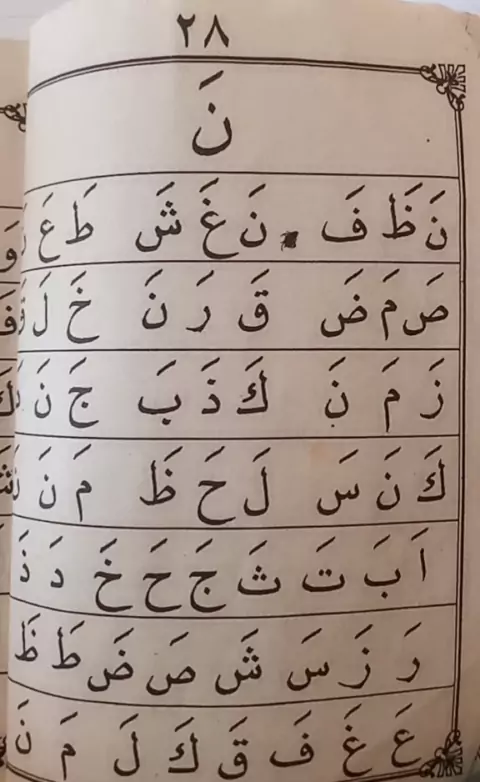 ٢٨
نَ
نَ ظَ فَ نَ غَ شَ طَ عَ
صَ مَ ضَ قَ رَ نَ خَ لَ
زَ مَ نَ كَ ذَ بَ جَ نَ
كَ نَ سَ لَ حَ ظَ مَ نَ
اَ بَ تَ ثَ جَ حَ خَ دَ ذَ
رَ زَ سَ شَ صَ ضَ طَ ظَ
عَ غَ فَ قَ كَ لَ مَ نَ